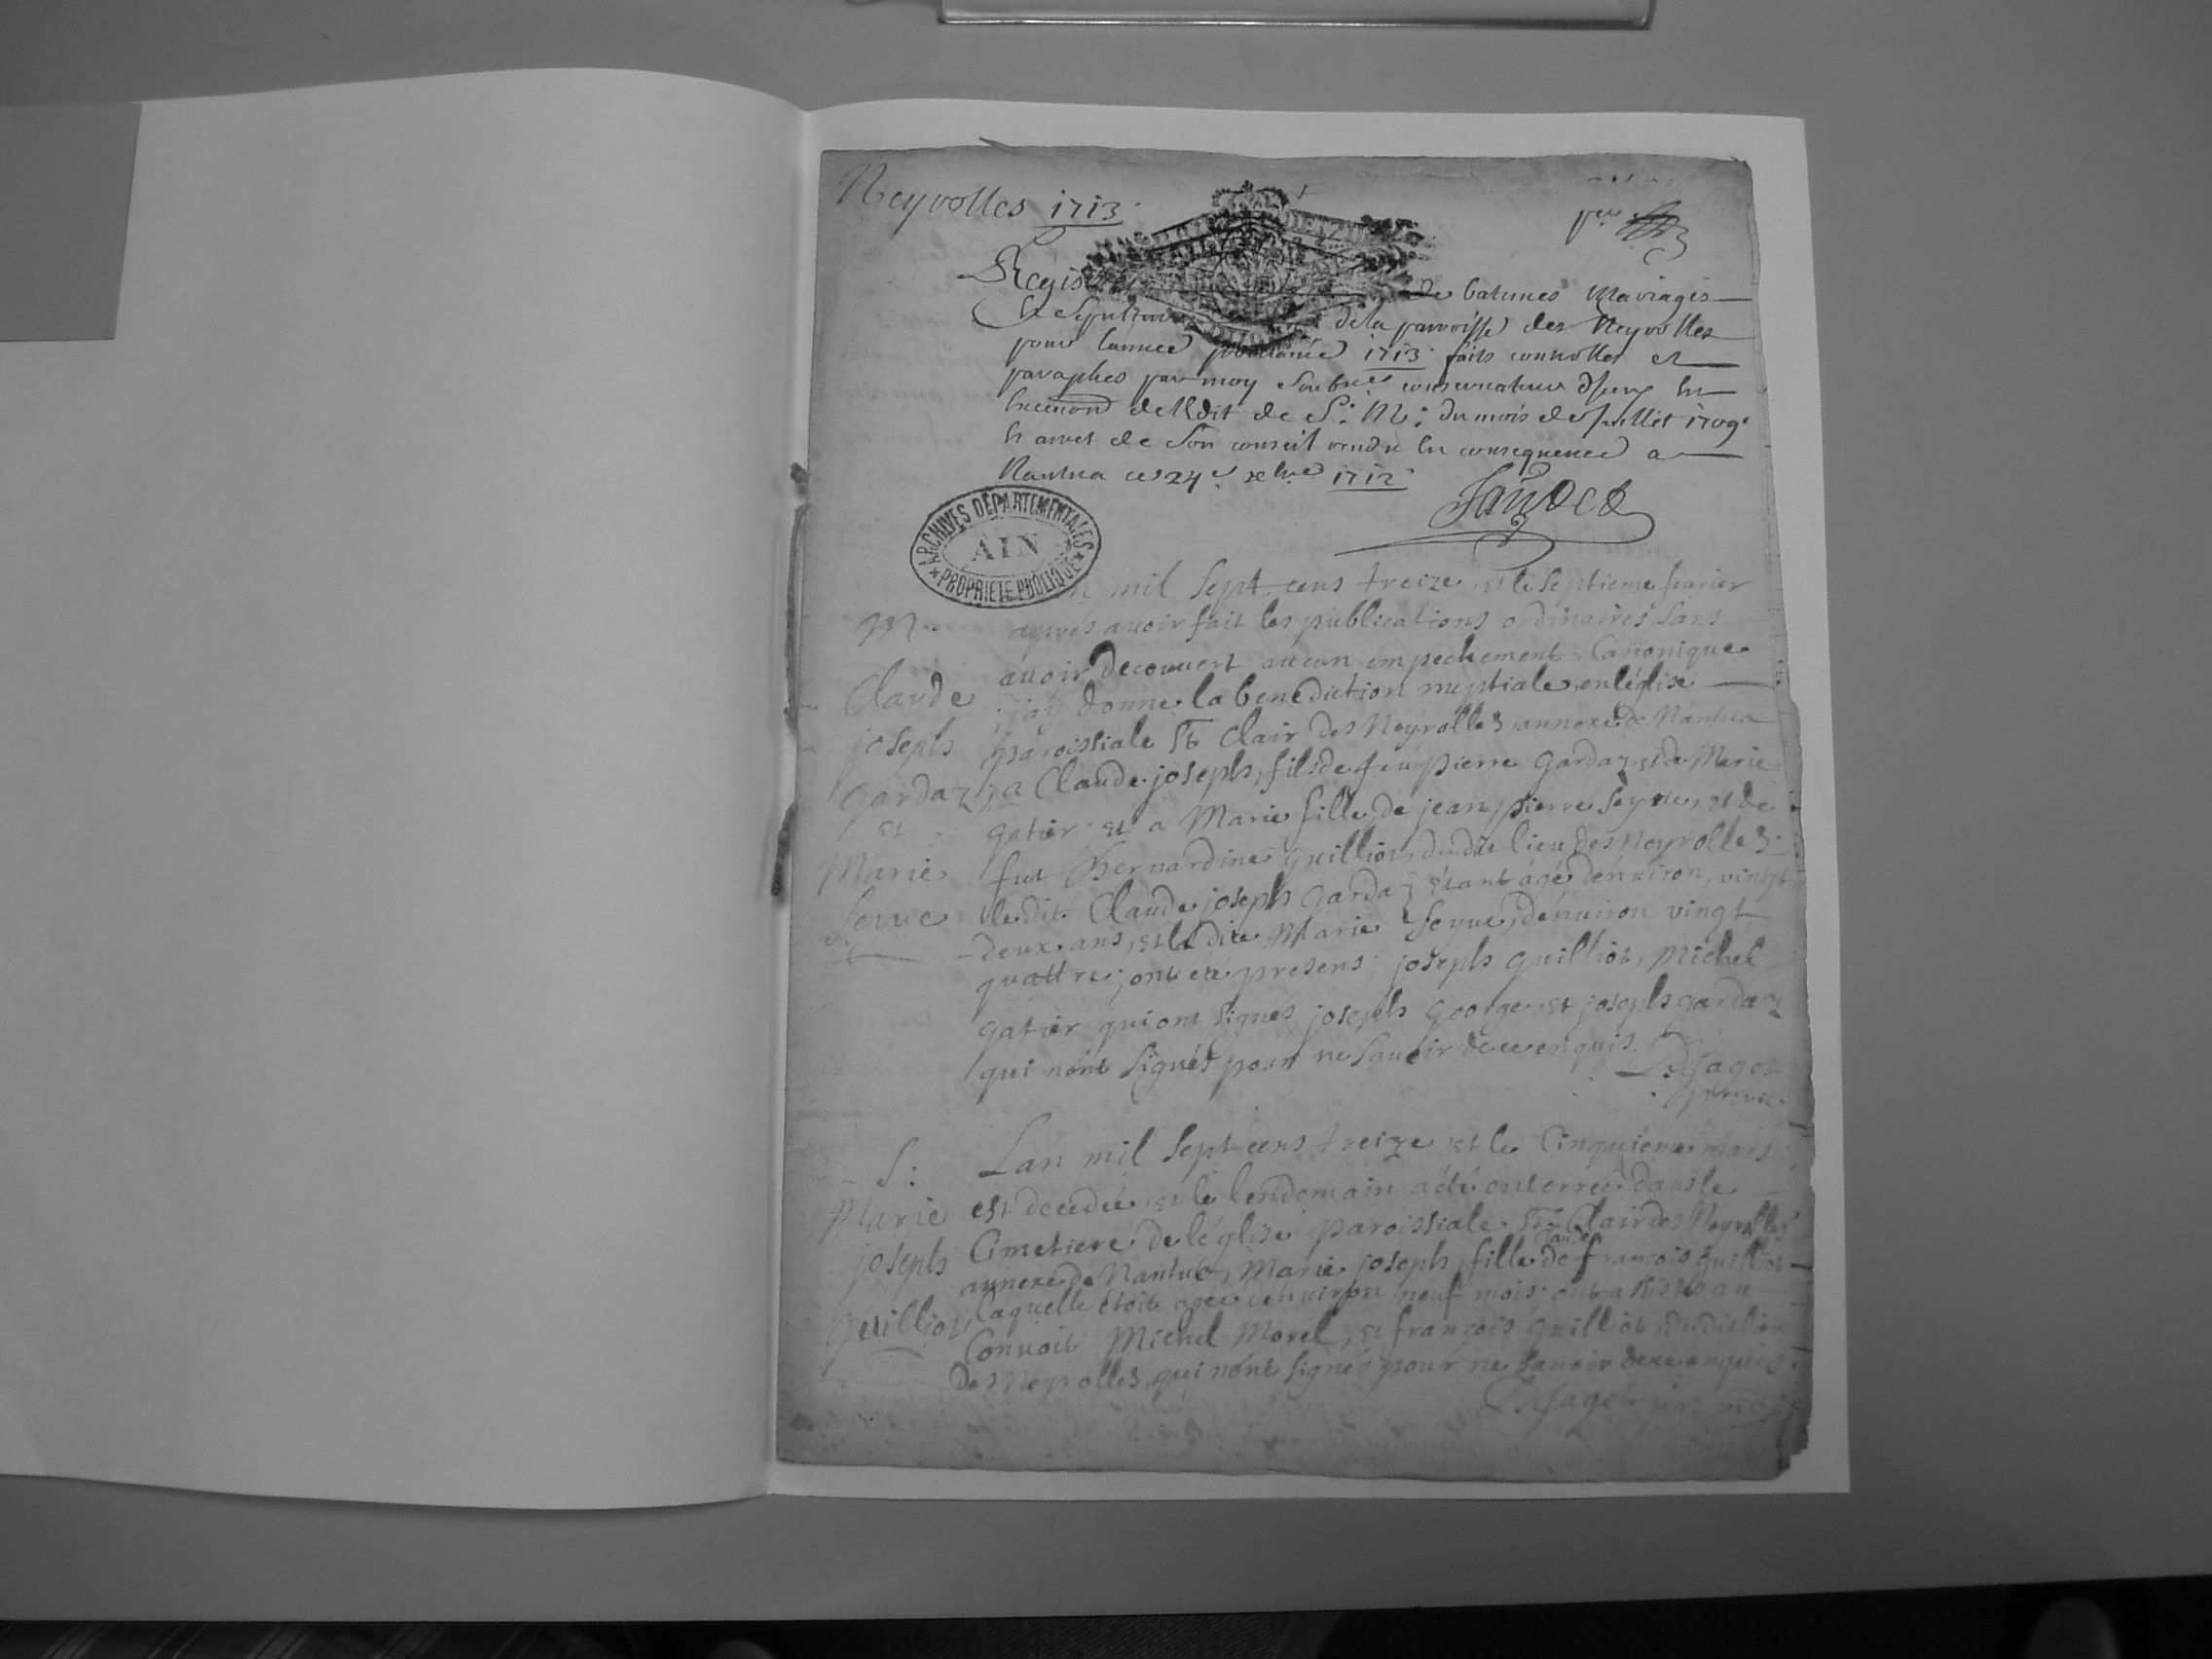 Neyrolles 1713
Registre de batemes Mariages
Et Sepulture de la parroisse des Neyrolles
pour lannee prochaine 1713 faits controller et
paraphes par moy conservateur dyceux En
Execution de l'Edit de S. M: du mois de Juillet 1709
Et arret de son conseil rendu En consequence a
Nantua ce 24e xbre 1712
ARCHIVES DÉPARTEMENTALES
AIN
PROPRIÉTÉ PUBLIQUE
mil sept cens treize et le septieme feurier
apres auoir fait les publications ordinaires sans
auoir decouuert aucun empechement Canonique
j'ay donné la benediction nuptiale, en léglise
paroissiale St Clair des Neyrolles annexe de Nantua
a Claude joseph, fils de feu pierre gardaz et de Marie
gatier et a Marie fille de jean pierre Seyue, et de
fut Bernardine guilliot du dit lieu des Neyrolles
ledit Claude joseph gardaz étant agé dénuiron, vingt
deux ans, et la dite Marie Seyue, dénuiron vingt
quattre; ont eté presens joseph guilliot, Michel
gatier qui ont signés joseph george et joseph gardaz
qui nónt signés pour ne sauoir de ce enquis.
M
Claude
joseph
gardaz
et
Marie
Seyue
Lan mil sept cens treize et le Cinquieme mars
est decedée et le lendemain a été enterrée dans le
Cimetiere de léglise paroissiale St Clair des Neyrolles
annexe de Nantua, Marie joseph, fille de françois guilliot
laquelle étoit agée denuiron neuf mois; ont assistés au
Conuoit Michel Morel, et françois guilliot du dit lieu
des Neyrolles, qui nónt signés pour ne sauoir de ce enquis
S:
Marie
joseph
guilliot